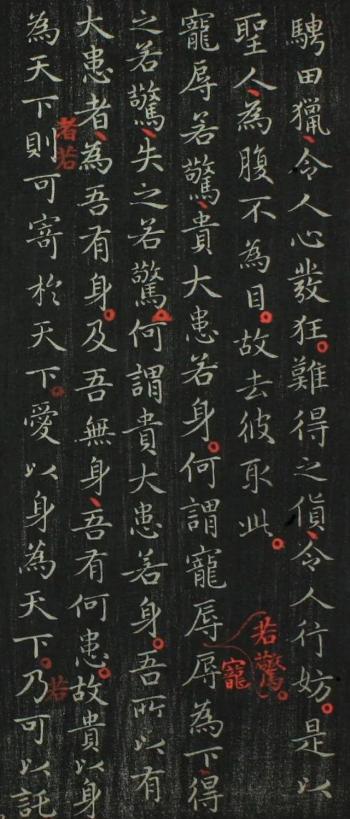 騁田獵、令人心發狂。難得之貨、令人行妨。是以
聖人、為腹不為目。故去彼取此。
寵辱若驚、貴大患若身。何謂寵辱若驚。寵辱為下、得
之若驚、失之若驚。何謂貴大患若身。吾所以有
大患者、為吾有身。及吾無身、吾有何患。故貴以身
為天下則可寄於天下。愛以身為天下。乃可以託
者若
若